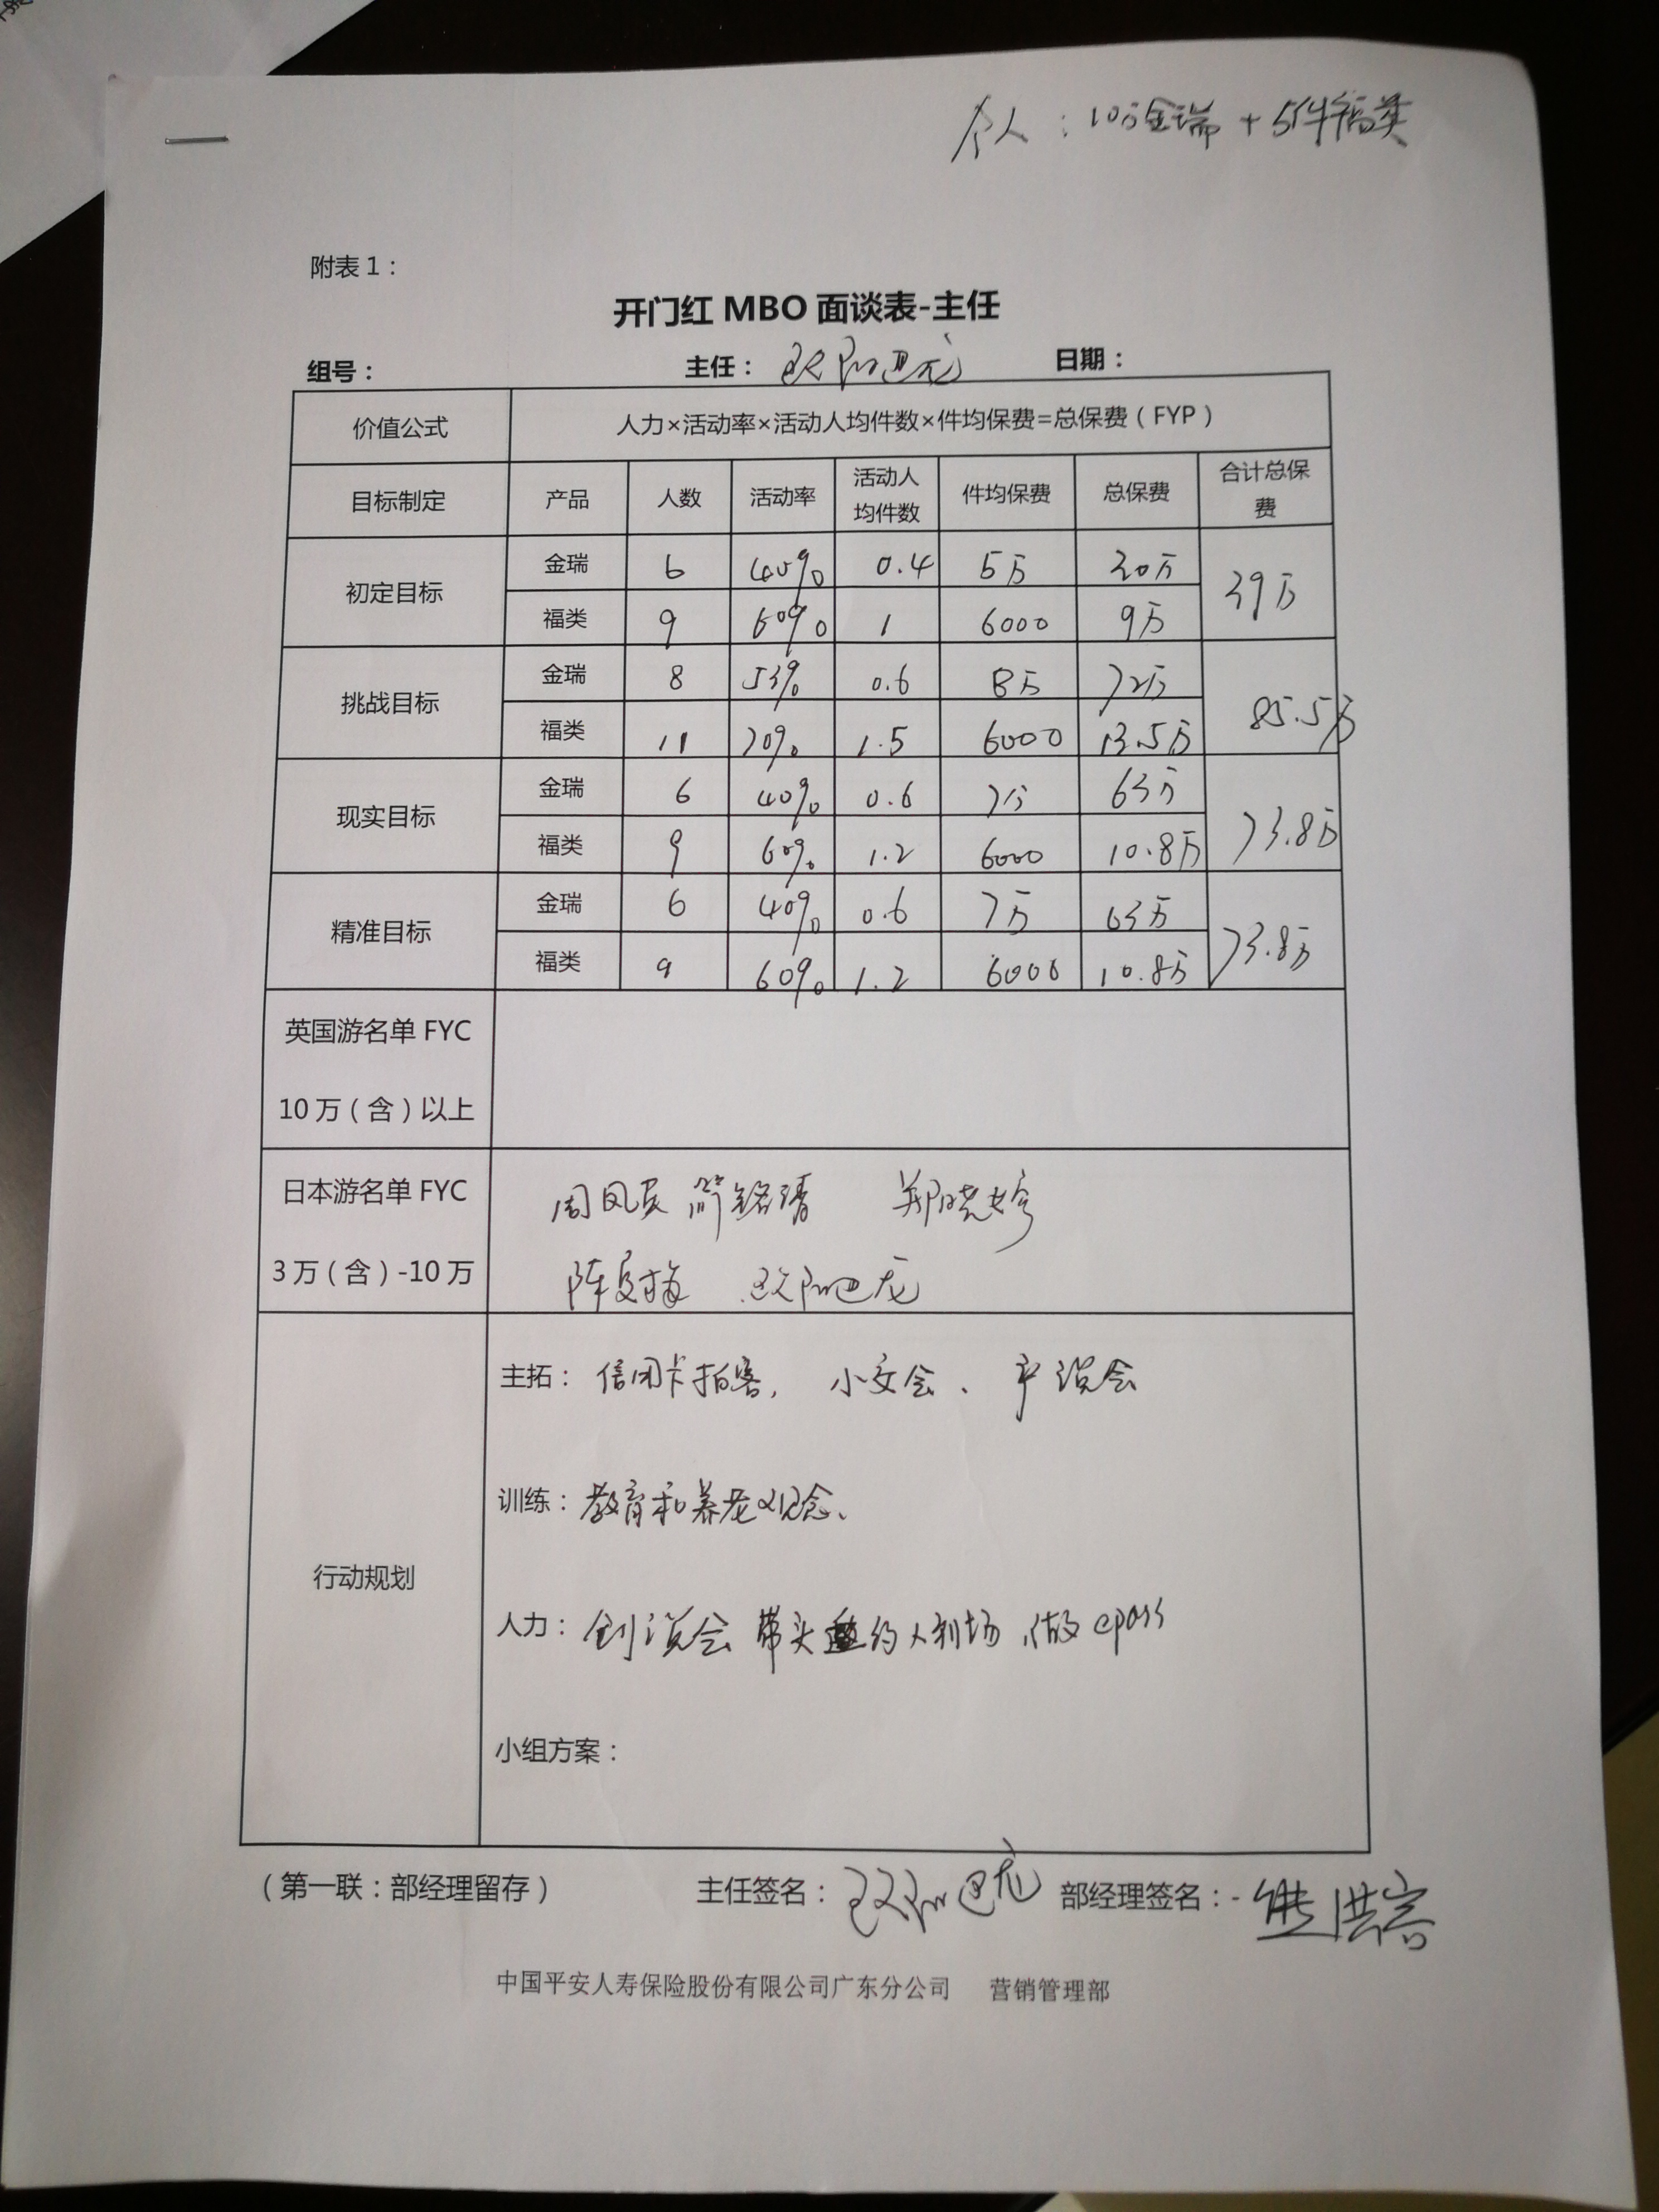 个人：10万金瑞 + 5件福类
附表1：
开门红 MBO 面谈表-主任
组号： 主任： 日期：
价值公式 人力×活动率×活动人均件数×件均保费=总保费（FYP）
目标制定 产品 人数 活动率 活动人均件数 件均保费 总保费 合计总保费
初定目标 金瑞 6 40% 0.4 5万 30万 39万
福类 9 60% 1 6000 9万
挑战目标 金瑞 8 53% 0.6 8万 72万 85.5万
福类 11 70% 1.5 6000 13.5万
现实目标 金瑞 6 40% 0.6 7万 63万 73.8万
福类 9 60% 1.2 6000 10.8万
精准目标 金瑞 6 40% 0.6 7万 63万 73.8万
福类 9 60% 1.2 6000 10.8万
英国游名单 FYC
10万（含）以上
日本游名单 FYC 周凤 简铭清 郑晓婷
3万（含）-10万 陈夏梅
主拓：信用卡拍客，小交会、产说会
训练：教育和养老观念、
行动规划
人力：创说会 带头邀约人到场，做epass
小组方案：
（第一联：部经理留存） 主任签名： 部经理签名：熊洪
中国平安人寿保险股份有限公司广东分公司 营销管理部